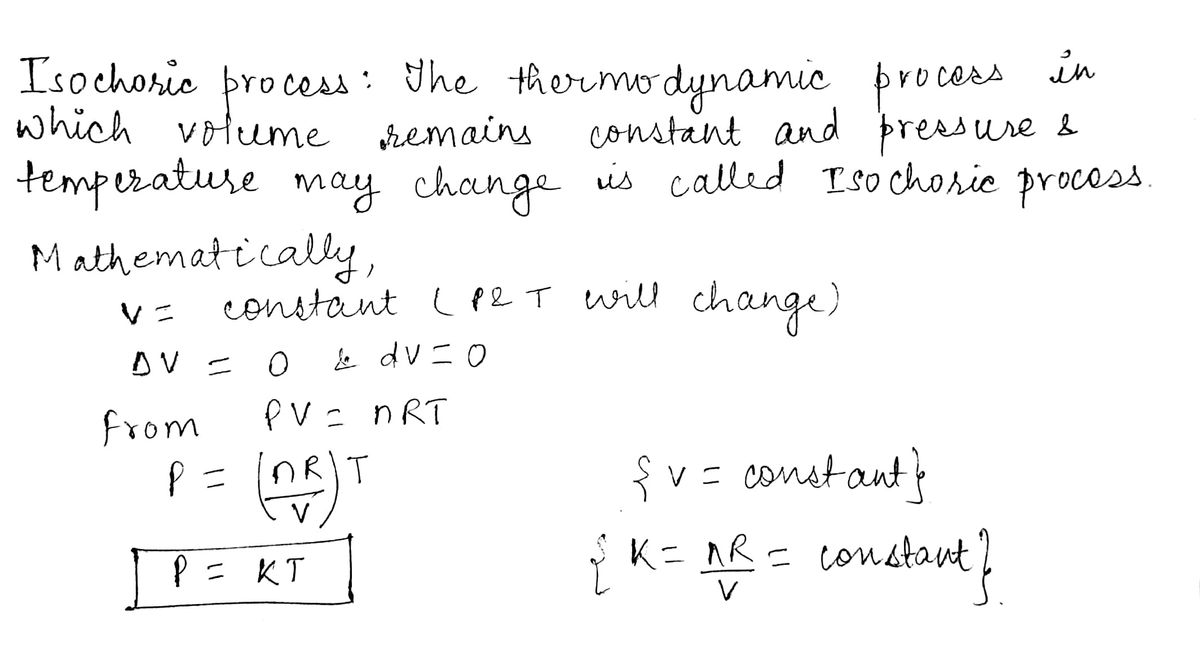 Isochoric process: The thermodynamic process in
which volume remains constant and pressure &
temperature may change is called Isochoric process.
Mathematically,
V = constant (P & T will change)
ΔV = 0 & dV = 0
from PV = nRT
P = (nR/V) T {V = constant}
P = KT {K = nR/V = constant}.